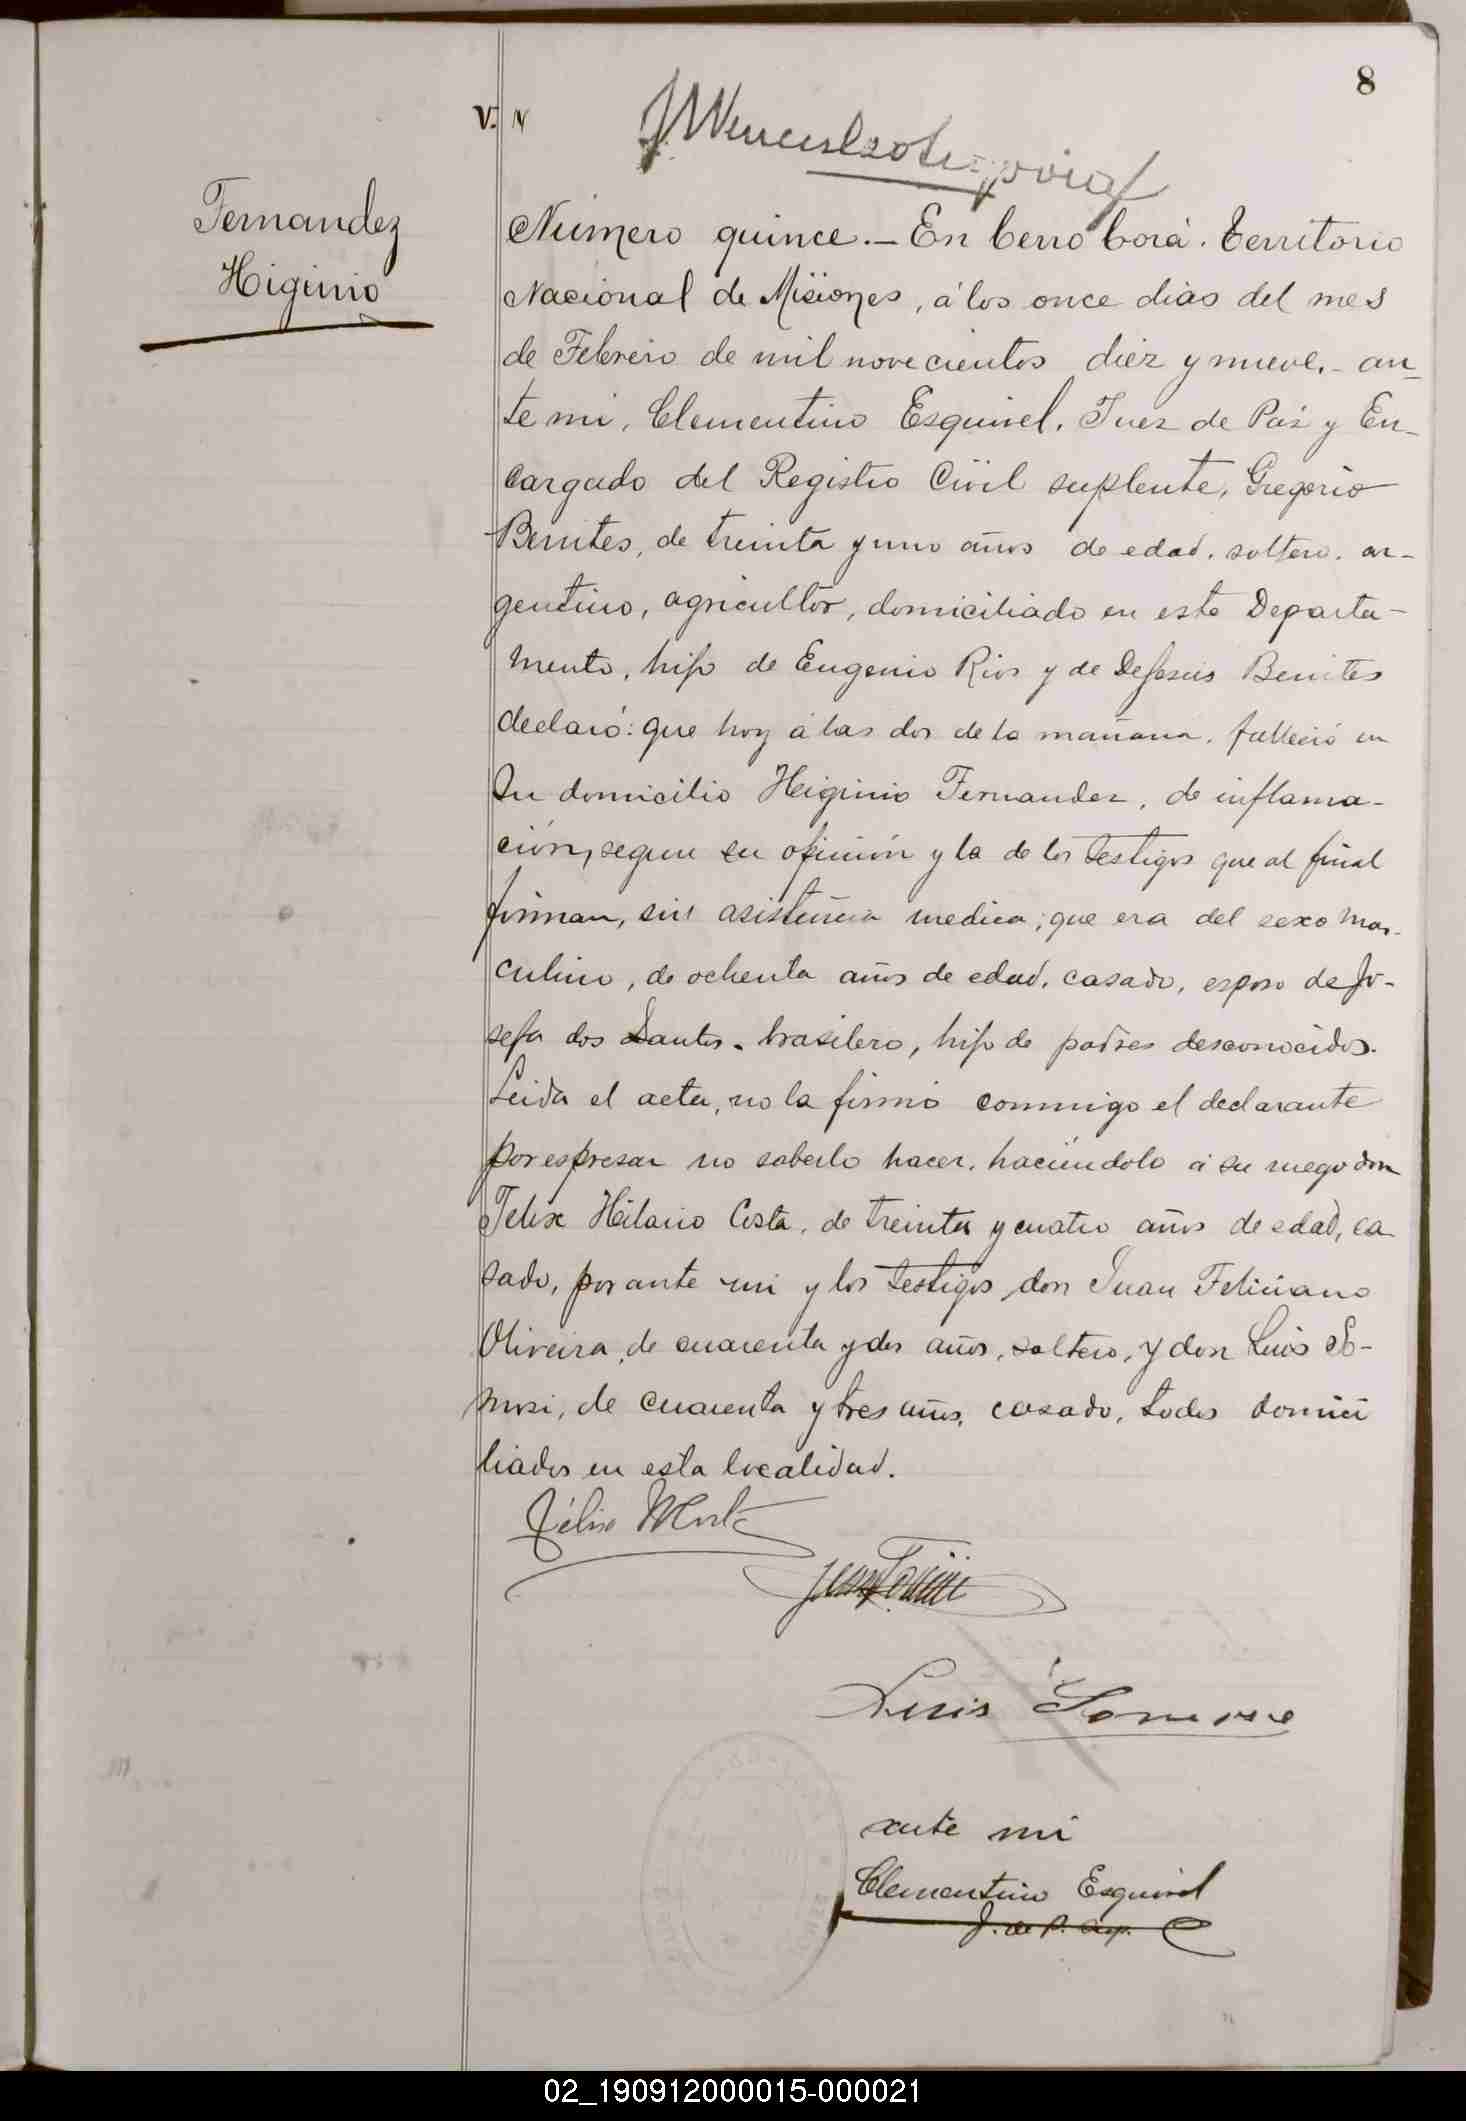 8
V. N
Fernandez
Higinio
Número quince.— En Cerro Corá. Territorio
Nacional de Misiones, á los once dias del mes
de Febrero de mil novecientos diez y nueve.- an-
te mi, Clementino Esquivel, Juez de Paz y En-
cargado del Registro Civil suplente, Gregorio
Benites, de treinta y uno años de edad, soltero, ar-
gentino, agricultor, domiciliado en este Departa-
mento, hijo de Eugenio Rios y de Dejesús Benites
declaró: que hoy á las dos de la mañana, falleció en
su domicilio Higinio Fernandez, de inflama-
ción, segun su opinión y la de los testigos que al final
firman, sin asistencia medica; que era del sexo mas-
culino, de ochenta años de edad, casado, esposo de Jo-
sefa dos Santos, brasilero, hijo de padres desconocidos.
Leida el acta, no la firmó conmigo el declarante
por espresar no saberlo hacer, haciéndolo á su ruego don
Felix Hilario Costa, de treinta y cuatro años de edad, ca
sado, por ante mi y los testigos don Juan Feliciano
Oliveira, de cuarenta y dos años, soltero, y don Luis So-
mosi, de cuarenta y tres años, casado, todos domici
liados en esta localidad.
Félix
Luis
ante mi
Clementino Esquivel
J. de P. sup.
02_190912000015-000021